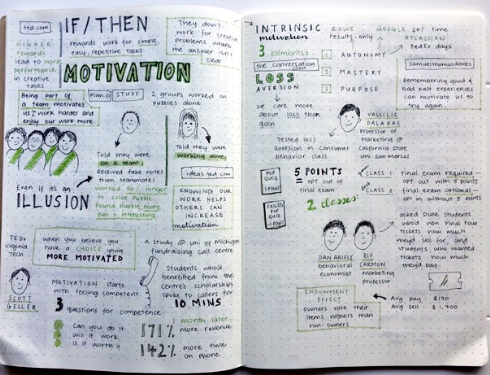 ted.com
IF/THEN
rewards work for simple,
easy, repetitive tasks
They don't
work for creative
problems where
the answer isn't
clear
HIGHER
rewards
lead to worse
performance
in creative
tasks
MOTIVATION
Being part of
a team motivates
us to work harder and
enjoy our work more
STUDY
2 groups worked on
puzzles alone
Told they were
on a team
Received fake notes
from teammates
worked 50% longer
to solve puzzle.
Found puzzle more
fun + interesting
Told they were
working alone
ideas.ted.com
KNOWING OUR
WORK HELPS
OTHERS CAN
INCREASE
motivation
Even if its an
ILLUSION
TEDx
Virginia
Tech
when you believe you
have a CHOICE you're
MORE MOTIVATED
SCOTT
GELLER
MOTIVATION starts
with feeling competent
3 questions for competence
Can you do it
Will it work
Is it worth it
A study @ Uni of Michigan
fundraising call centre
Students who'd
benefited from the
centre's scholarships
spoke to callers for
10 MINS
month later...
171% more revenue
142% more time
on phone
INTRINSIC
motivation
ROWE
results only
GOOGLE 20% time
ATLASSIAN
FedEx days
3 elements
1 AUTONOMY
2 MASTERY
3 PURPOSE
the conversation
LOSS
AVERSION
we care more
about loss than
gain
samuelthomasdavies
Remembering good &
bad past experiences
can motivate us to
try again.
VASSILIS
DALAKAS
Professor of
Marketing @
California state
uni San Marcos
Tested loss
aversion in consumer
behavior class
POP
QUIZ
5 POINTS
opt out of
final exam
CLASS 1
final exam required -
opt out with 5 points
CLASS 2
final exam optional -
opt in without 5 points
FAILED
POP
QUIZ
2 classes
DAN ARIELY
behavioral
economist
ZIV
CARMON
marketing
professor
asked Duke students
who'd won final four
tickets how much
they'd sell for, and
students who wanted
tickets how much
they'd pay.
ENDOWMENT
EFFECT
Owners rate their
items higher than
non-owners
Avg pay $170
Avg sell $2,400